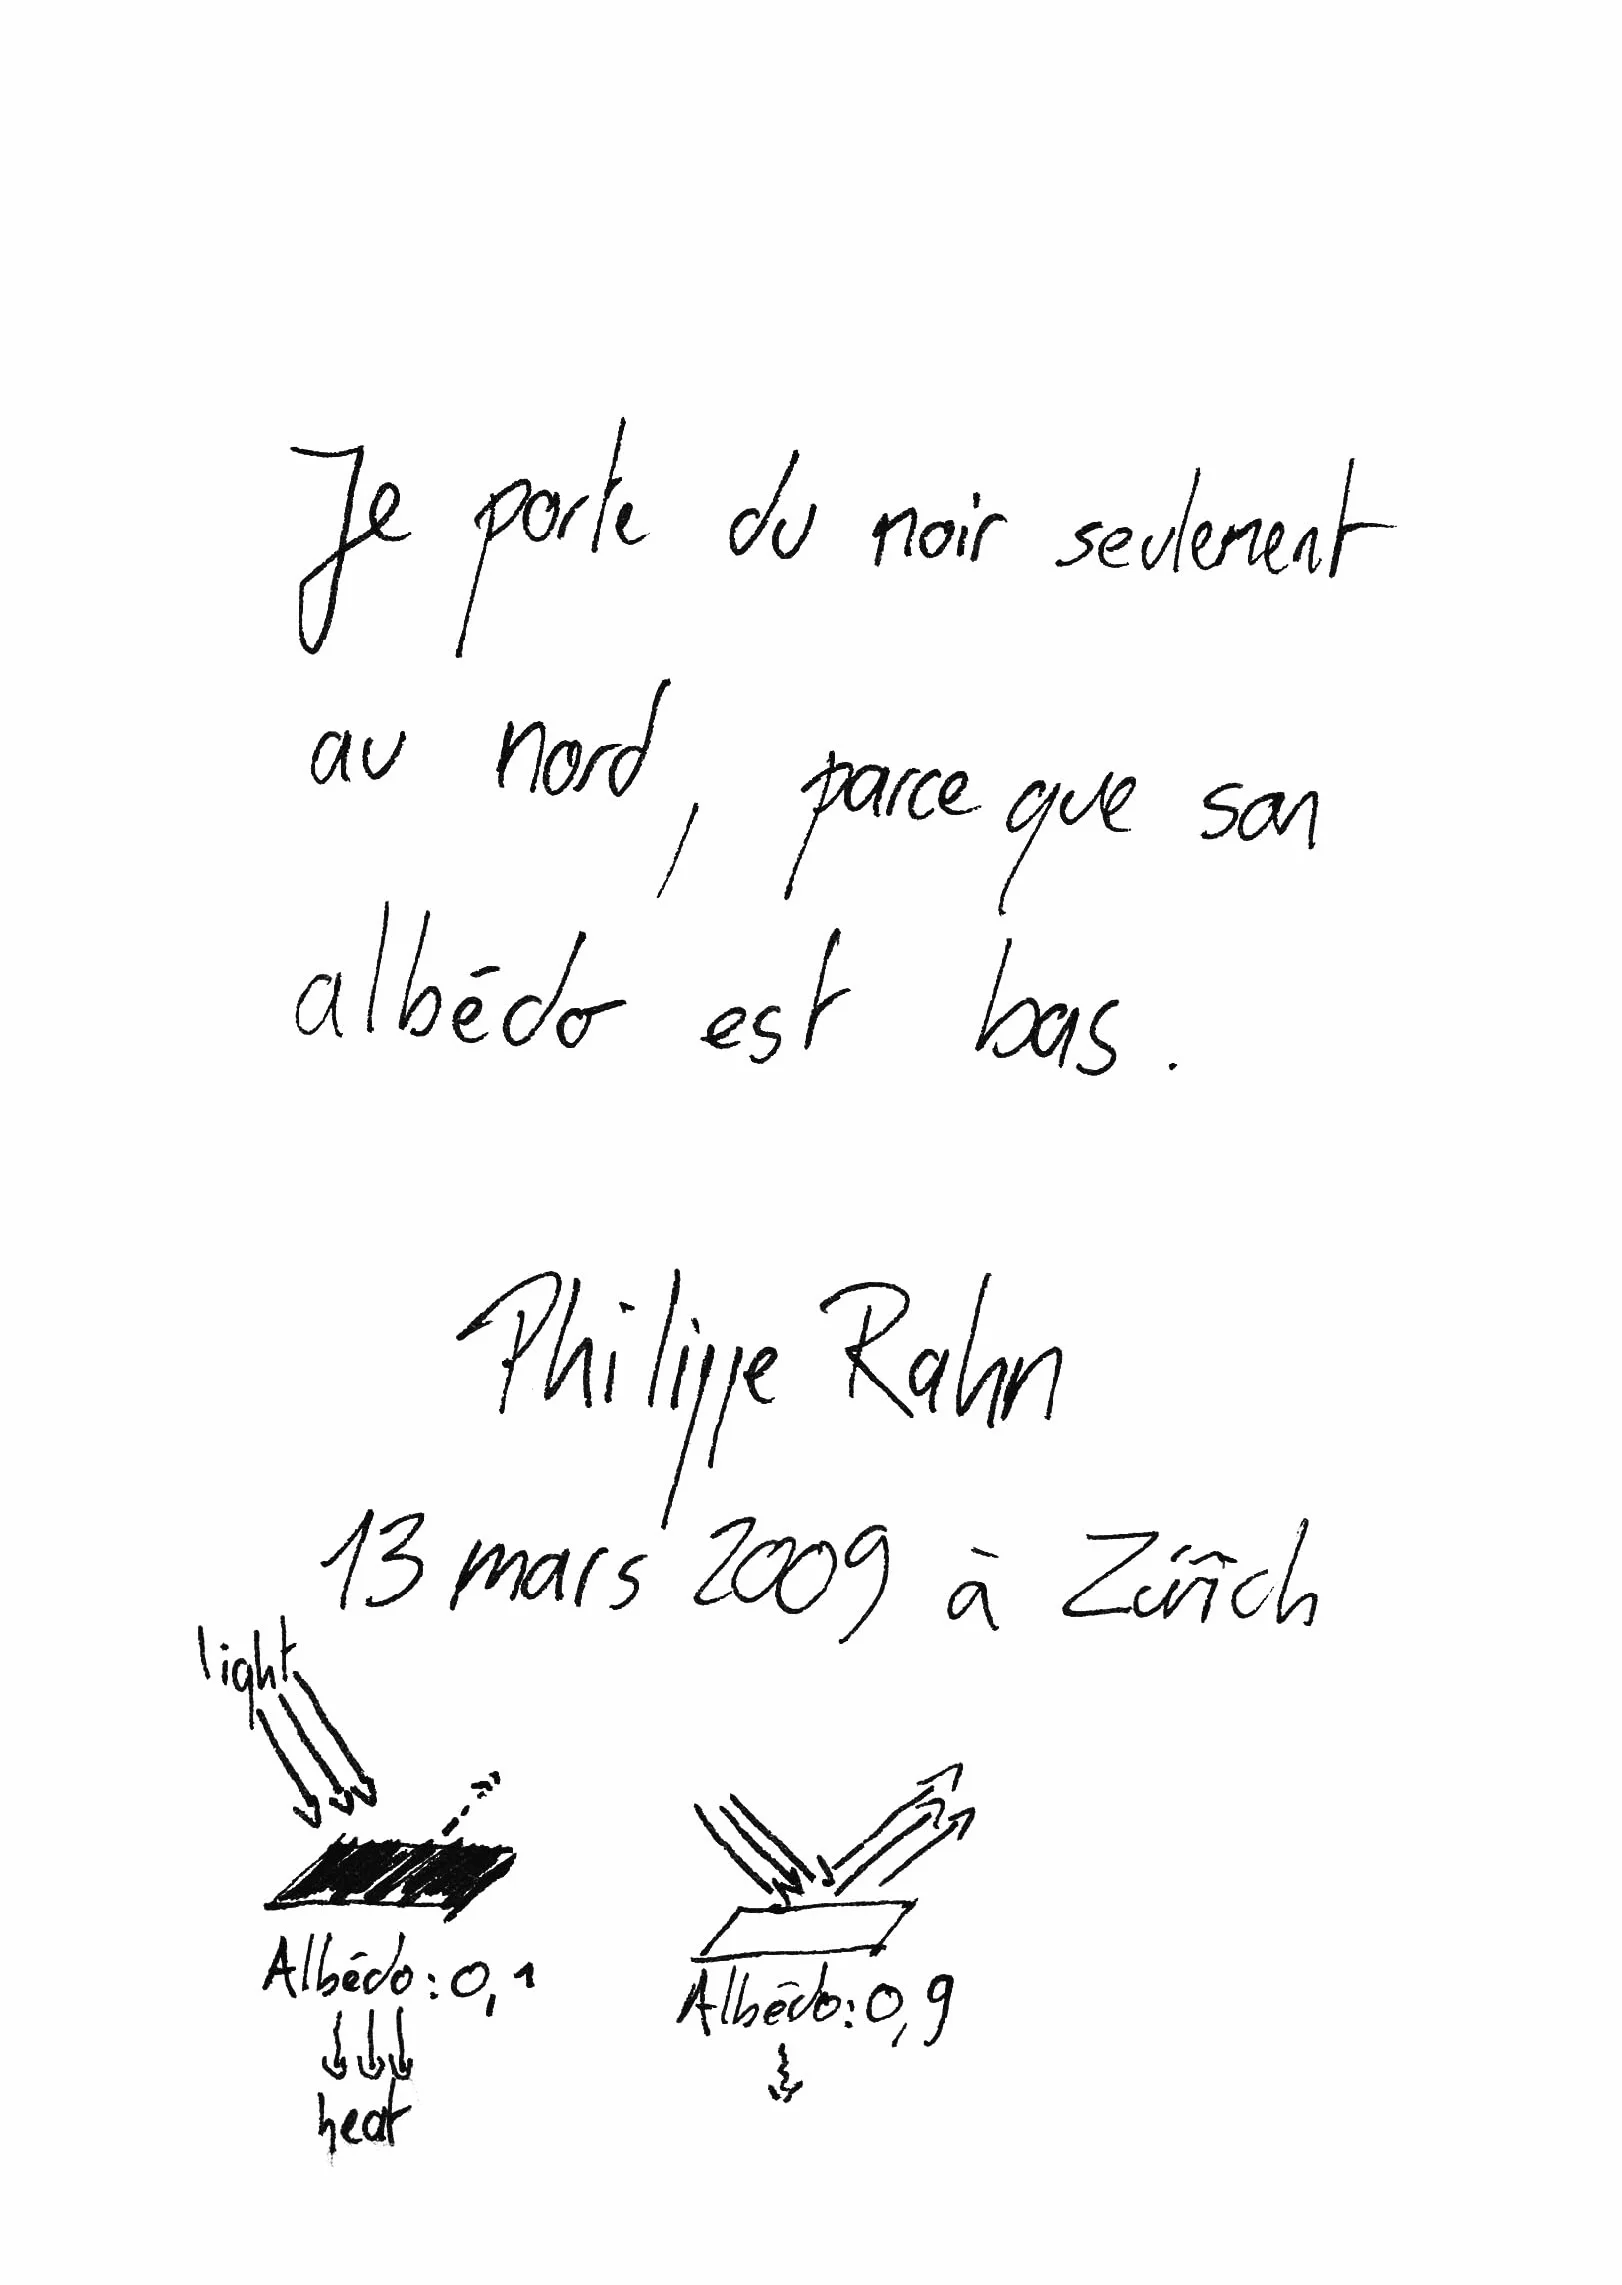 Je porte du noir seulement
au nord, parce que son
albédo est bas.
Philippe Rahm
13 mars 2009 à Zürich
light
Albédo: 0,1
Albédo: 0,9
heat